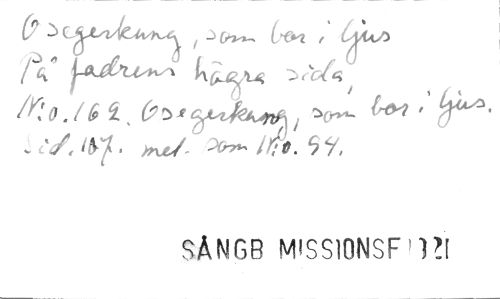 O segerkung, som bor i ljus
På fadrens högra sida,
N:o. 162. O segerkung, som bor i ljus.
Sid. 107. mel. som N:o. 94.
SÅNGB MISSIONSF 1921